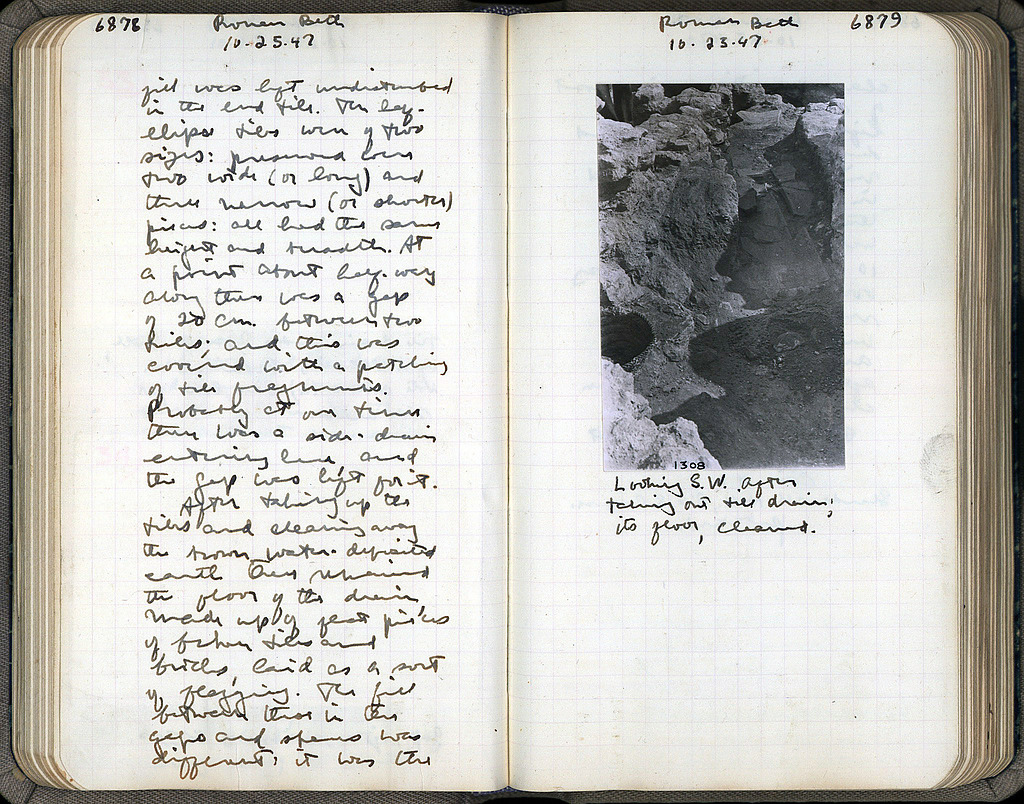 6878
Roman Bath
10-25-47
fill was left undisturbed
in the end tile. The half-
ellipse tiles were of two
sizes: preserved were
two wide (or long) and
three narrow (or shorter)
pieces: all had the same
height and breadth. At
a point about half-way
along there was a gap
of 20 cm. between two
tiles; and this was
covered with a patching
of tile fragments.
Probably at one time
there was a side-drain
entering here and
the gap was left for it.
After taking up the
tiles and clearing away
the brown water-deposited
earth there remained
the floor of the drain
made up of flat pieces
of broken tiles and
bricks, laid as a sort
of flagging. The fill
between these in the
gaps and seams was
different: it was the
Roman Bath
6879
10-23-47
1308
Looking S.W. after
taking out tile drain;
its floor, cleaned.